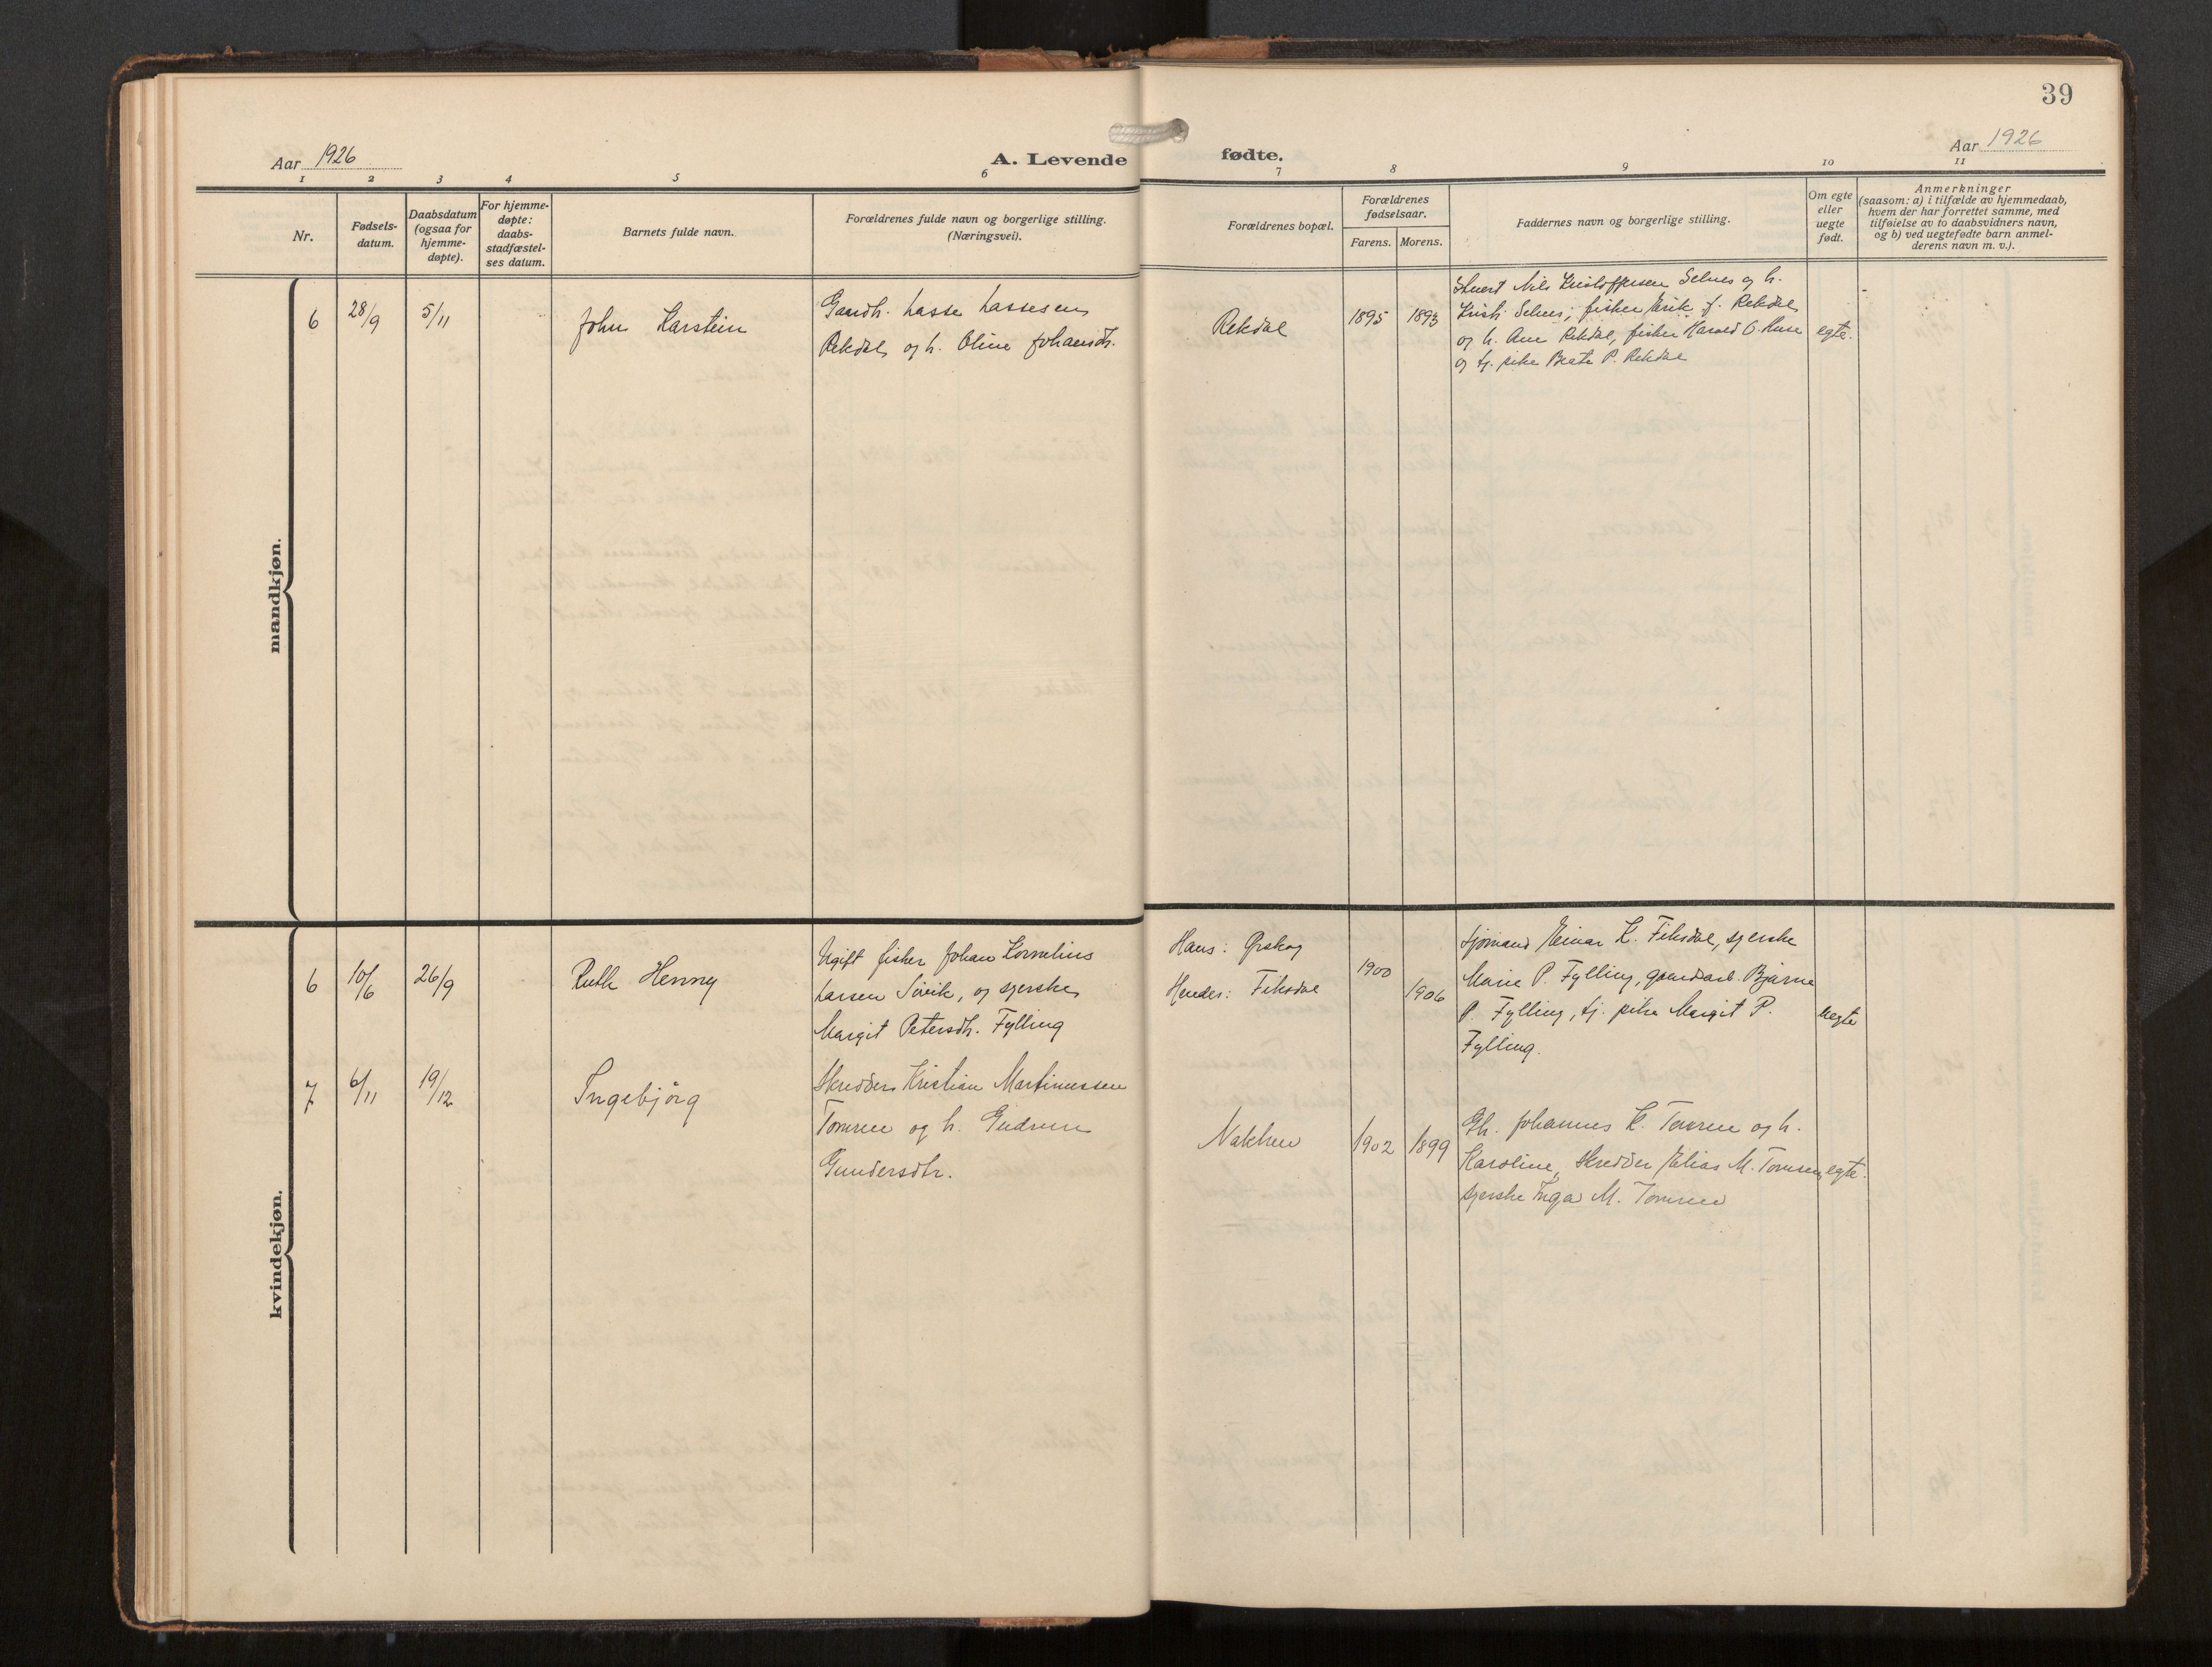 39
Aar 1926
A. Levende
fødte.
Aar 1926
1 2 3 4 5 6 7 8 9 10 11
Nr.
Fødsels-
datum.
Daabsdatum
(ogsaa for
hjemme-
døpte).
For hjemme-
døpte:
daabs-
stadfæstel-
ses datum.
Barnets fulde navn.
Forældrenes fulde navn og borgerlige stilling.
(Næringsvei).
Forældrenes bopæl.
Forældrenes
fødselsaar.
Farens. Morens.
Faddernes navn og borgerlige stilling.
Om egte
eller
uegte
født.
Anmerkninger
(saasom: a) i tilfælde av hjemmedaab,
hvem der har forrettet samme, med
tilføielse av to daabsvidners navn,
og b) ved uegtefødte barn anmel-
derens navn m. v.).
mandkjøn.
6 28/9 5/11 John Karstein
Gaardb. Lasse Lassesen
Rekdal og h. Oline Johansdtr.
Rekdal 1895 1893
Nils Kristoffersen Selnes og h.
Kristi Selnes; fisker Erik J. Rekdal
og h. Ane Rekdal, fisker Harald O. Huse
og tj. pike Beate P. Rekdal
egte.
kvindekjøn.
6 10/6 26/9 Ruth Henny
Ugift fisker Johan Kornelius
Larsen Søvik, og syerske
Margit Petersdtr. Fylling
Hans: Ørskog
Hendes: Fiksdal
1900 1906
Sjømand Einar K. Fiksdal, syerske
Marie P. Fylling, gaardsarb. Bjarne
P. Fylling, tj. pike Margit P.
Fylling.
uegte
7 6/11 19/12 Ingebjørg
Skredder Kristian Martinussen
Tomren og h. Gudrun
Gundersdtr.
Nakken 1902 1899
Gb. Johannes K. Tomren og h.
Karoline, skredder Elias M. Tomren,
syerske Inga M. Tomren
egte.